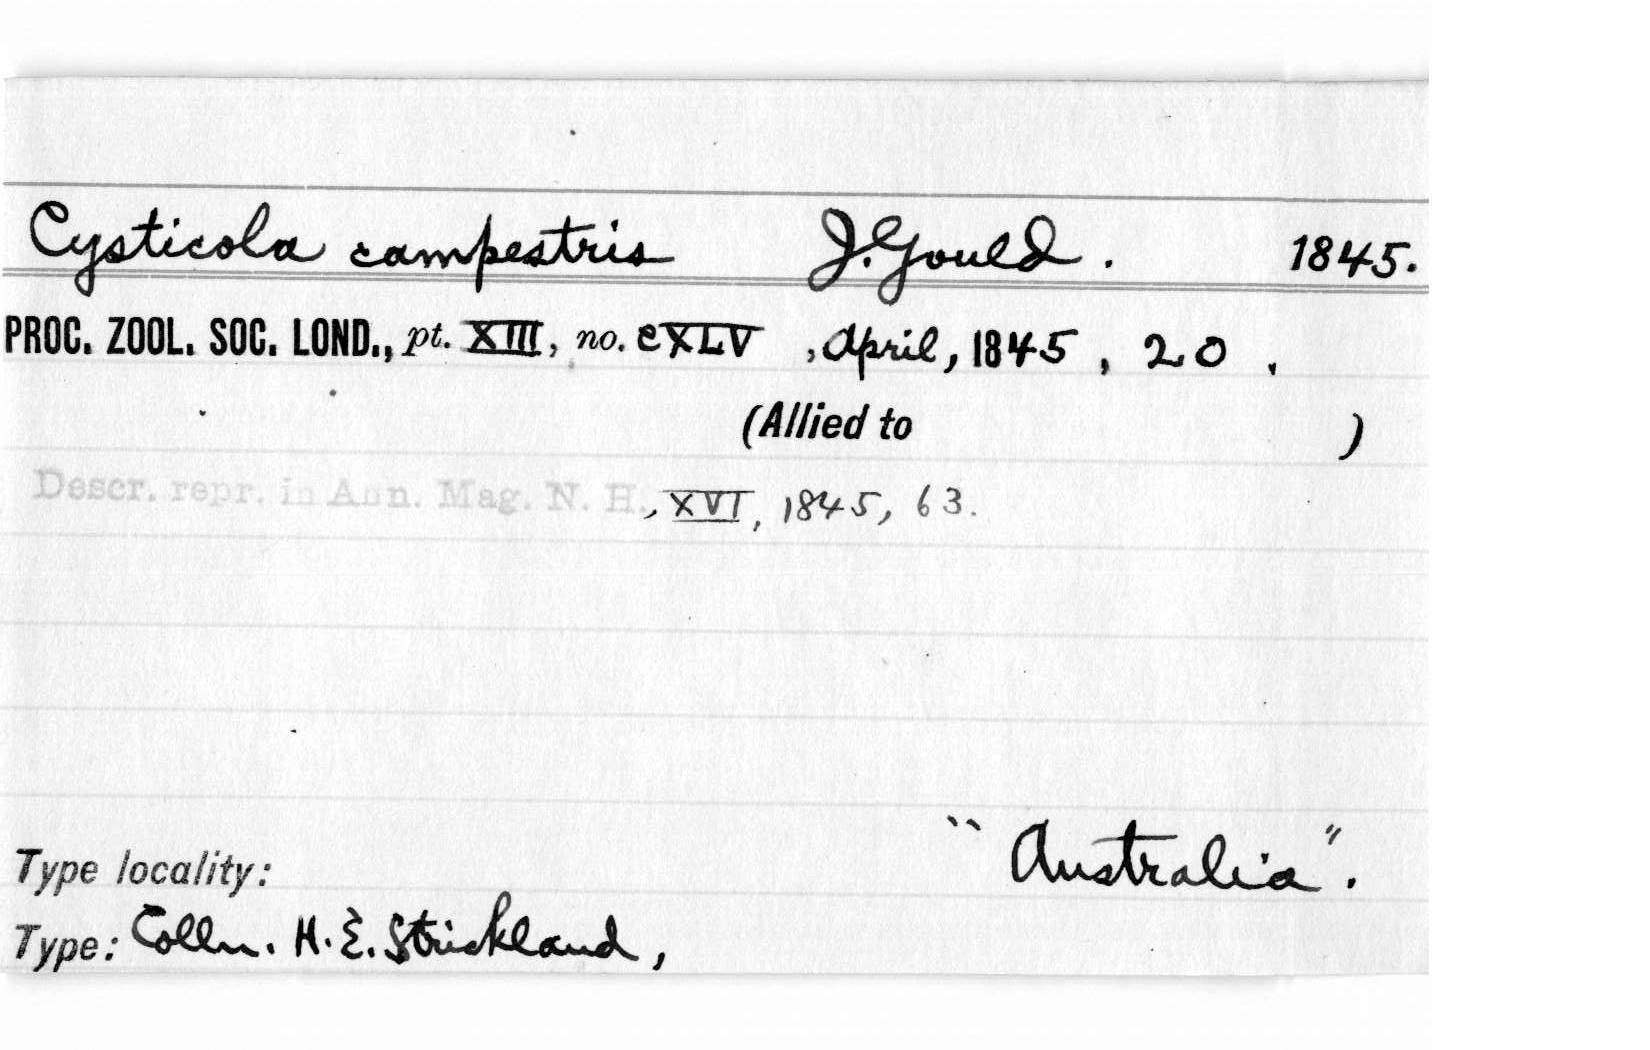 Cysticola campestris J. Gould. 1845.
PROC. ZOOL. SOC. LOND., pt. XIII, no. CXLV, April, 1845, 20.
(Allied to )
Descr. repr. in Ann. Mag. N. H., XVI, 1845, 63.
Type locality: "Australia".
Type: Colln. H. E. Strickland,